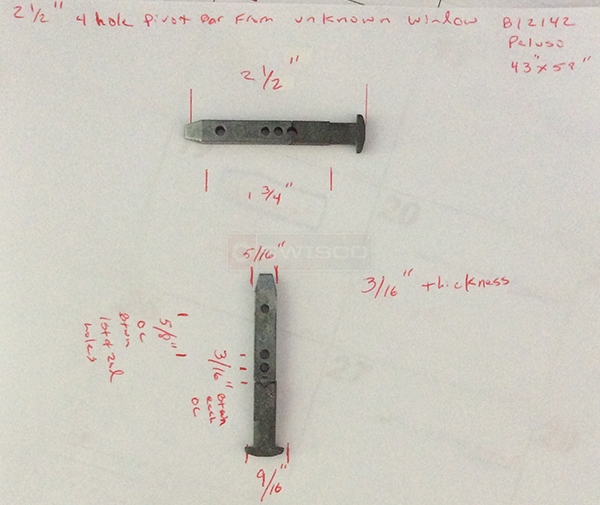 2 1/2" 4 hole Pivot Bar From unknown window B12142
Peluso
43" x 58"
2 1/2"
1 3/4"
SWISCO
5/16"
3/16" thickness
5/8"
OC
Btwn
1st & 2nd
holes
3/16" Btwn
each
OC
9/16"
20
27